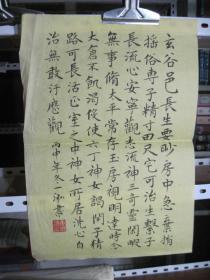 玄谷邑長生要眇房中急棄捐
俗專子精寸田尺宅可治生繫子
長流心安寧觀志流神三奇靈閑暇
無事脩太平常存玉房視明達時念
大倉不飢渴役使六丁神女謁閉子精
路可長活正室之中神女所居洗心自
治無敢汙歷觀 丙申年冬一泓書